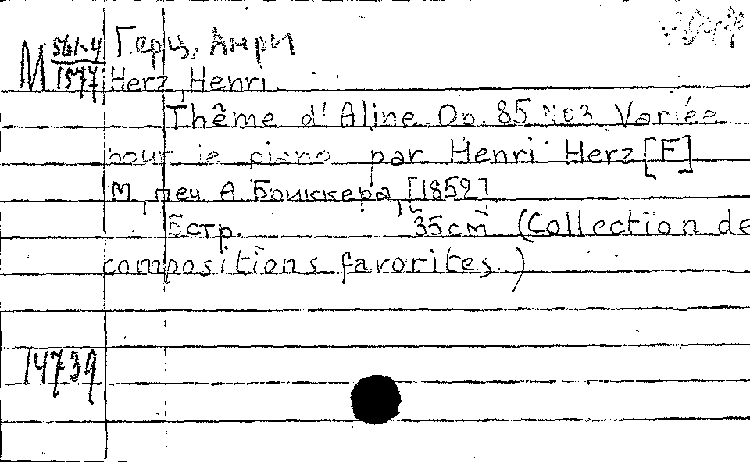 Герц, Анри
M 561-4/1577
Herz, Henri.
Thême d'Aline Op. 85 No3 Variée
pour le piano par Henri Herz [F]
М., печ. А. Бюккера, [1859]
6стр. 35cm (Collection de
compositions favorites.)
14739